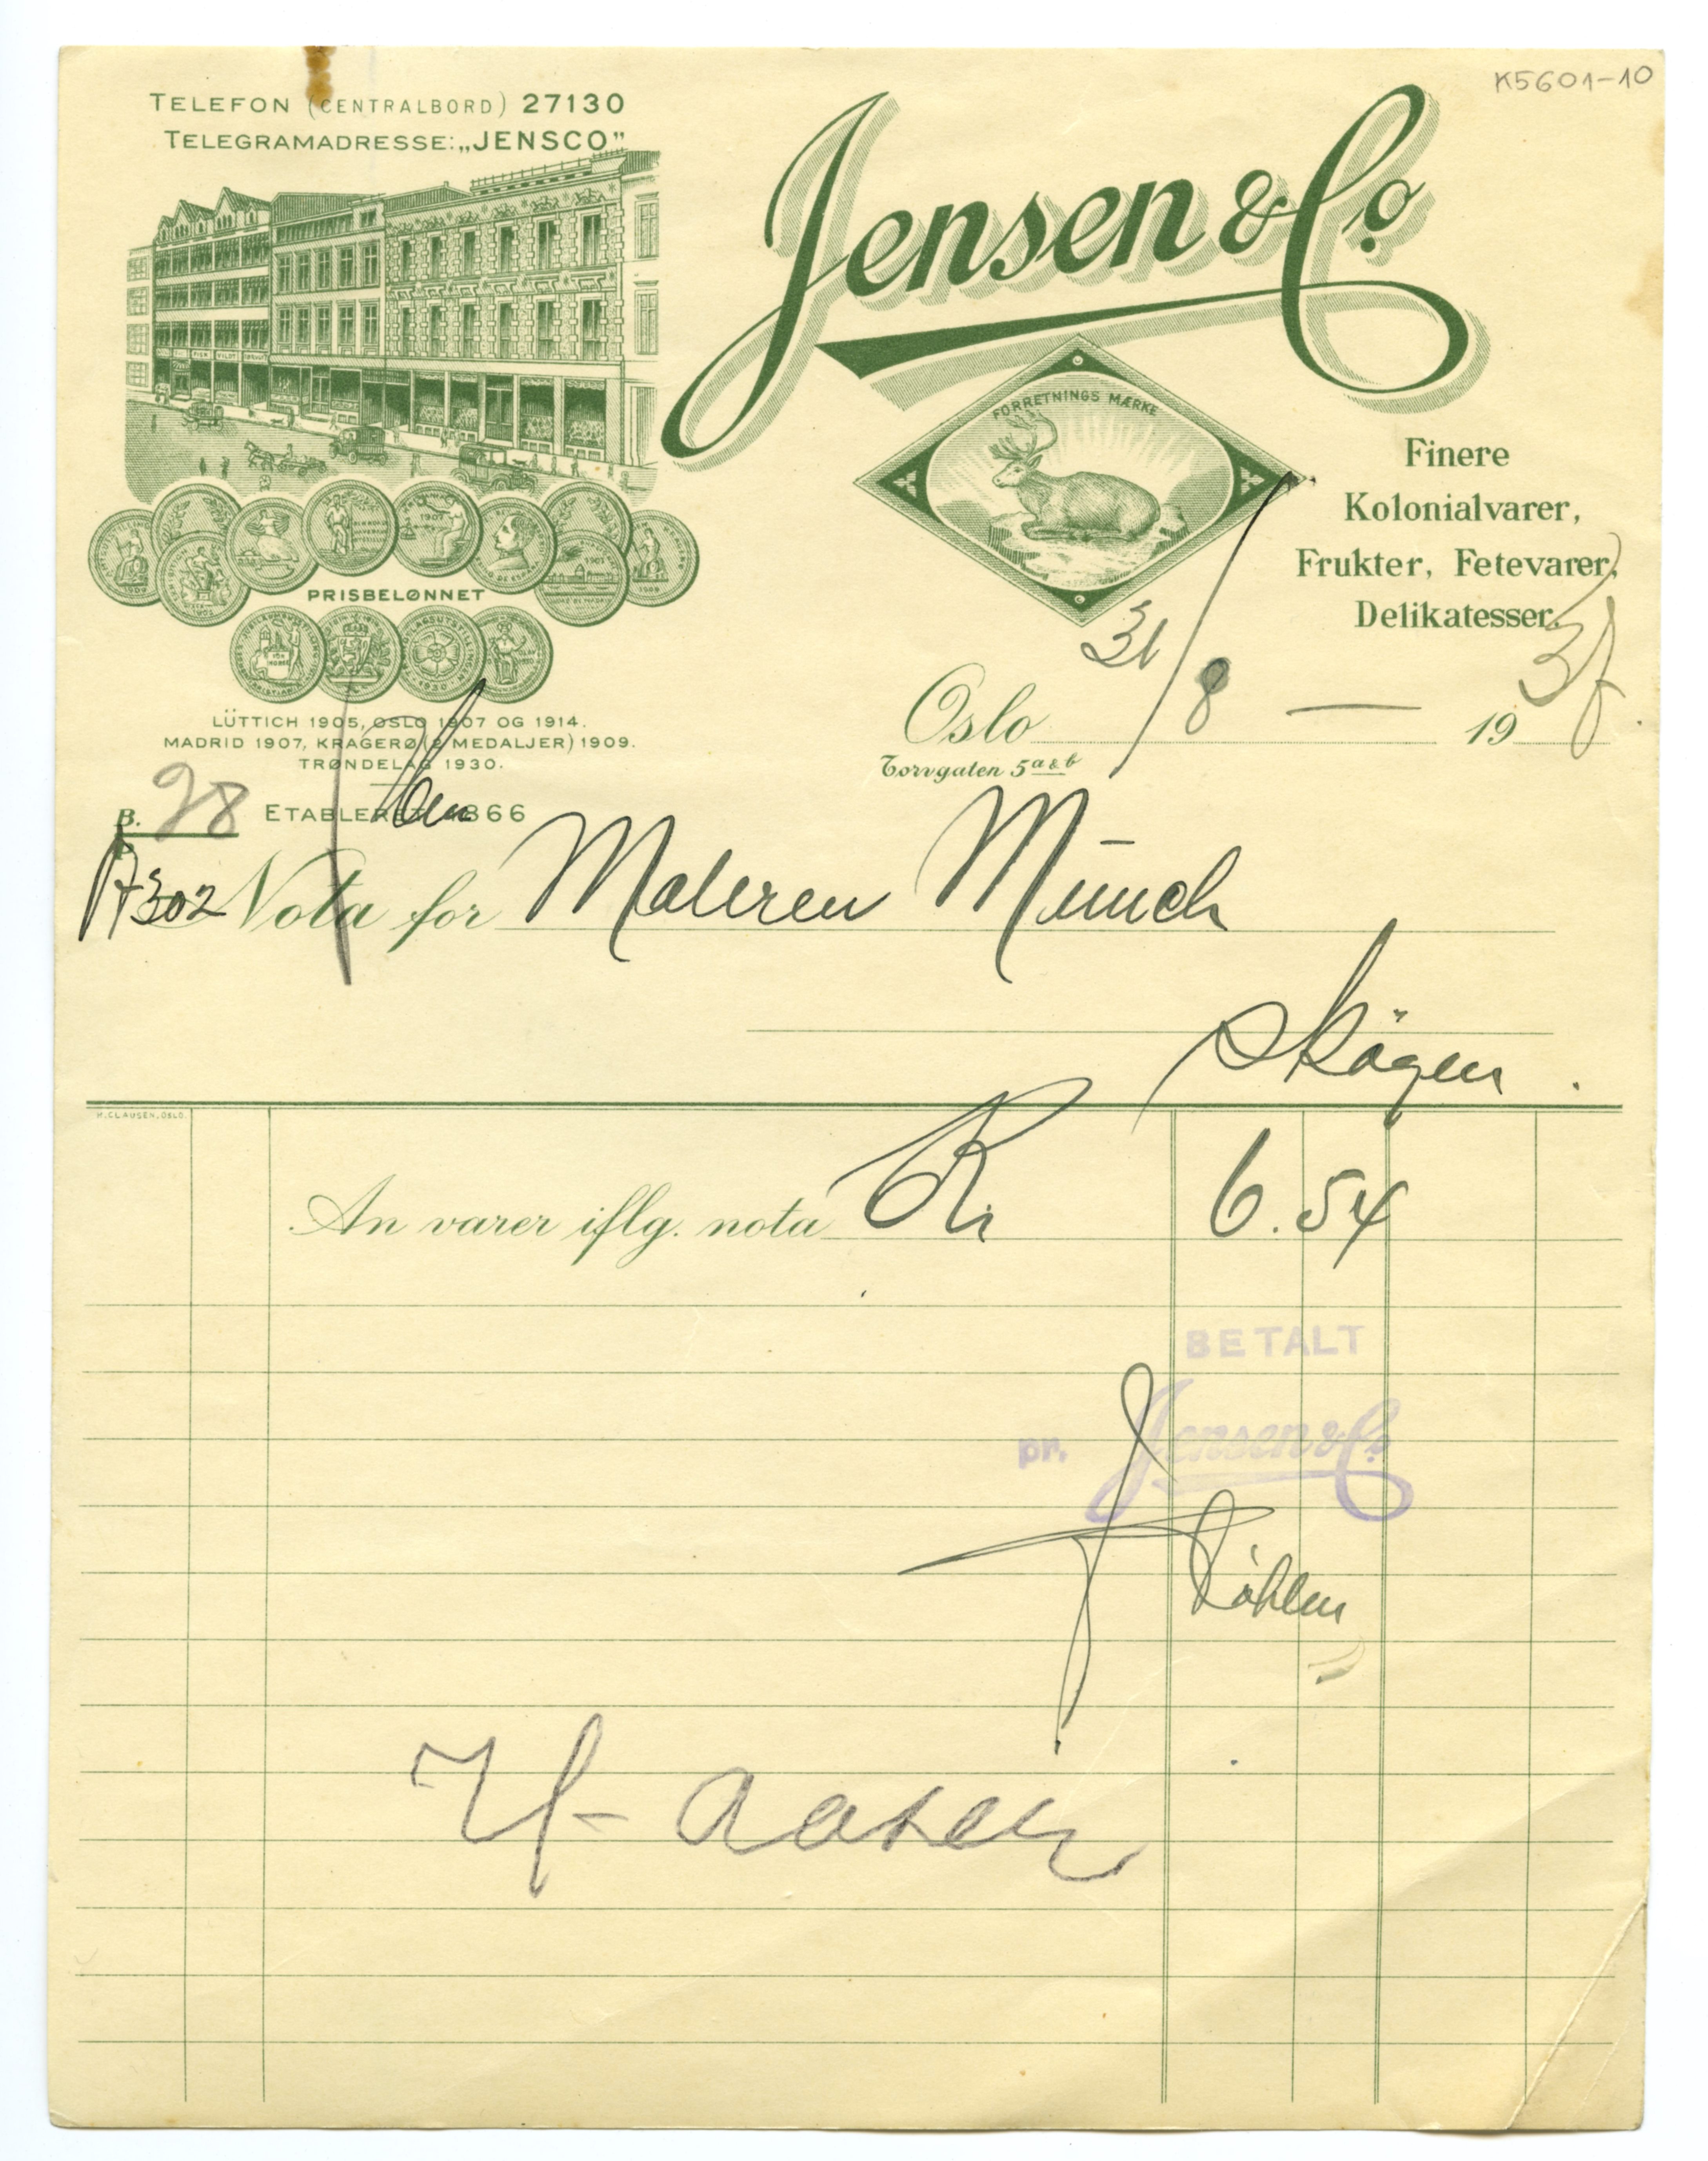 K5601-10
TELEFON (CENTRALBORD) 27130
TELEGRAMADRESSE: „JENSCO”
Jensen & Co
FORRETNINGS MÆRKE
Finere
Kolonialvarer,
Frukter, Fetevarer,
Delikatesser.
PRISBELØNNET
LÜTTICH 1905, OSLO 1907 OG 1914.
MADRID 1907, KRAGERØ (2 MEDALJER) 1909.
TRØNDELAG 1930.
ETABLERET 1866
Oslo 31/8 — 19
Torvgaten 5 a & b
B. 28
A302 Nota for Maleren Münch
Skøyen.
H. CLAUSEN, OSLO.
An varer iflg. nota Kr 6.54
BETALT
pr. Jensen & Co